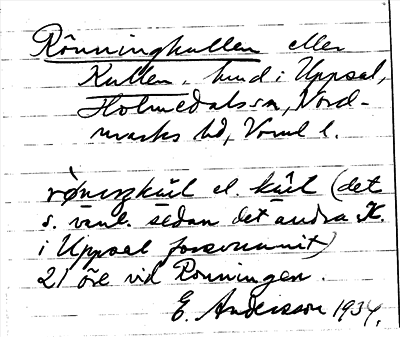 Rönningkullen eller
Kullen, hmd i Uppsal,
Holmedals sn, Nord-
marks hd, Vrml l.
el. (det
s. vanl. sedan det andra K.
i Uppsal försvunnit)
21 öre vid Rönningen.
E. Andersson 1934.